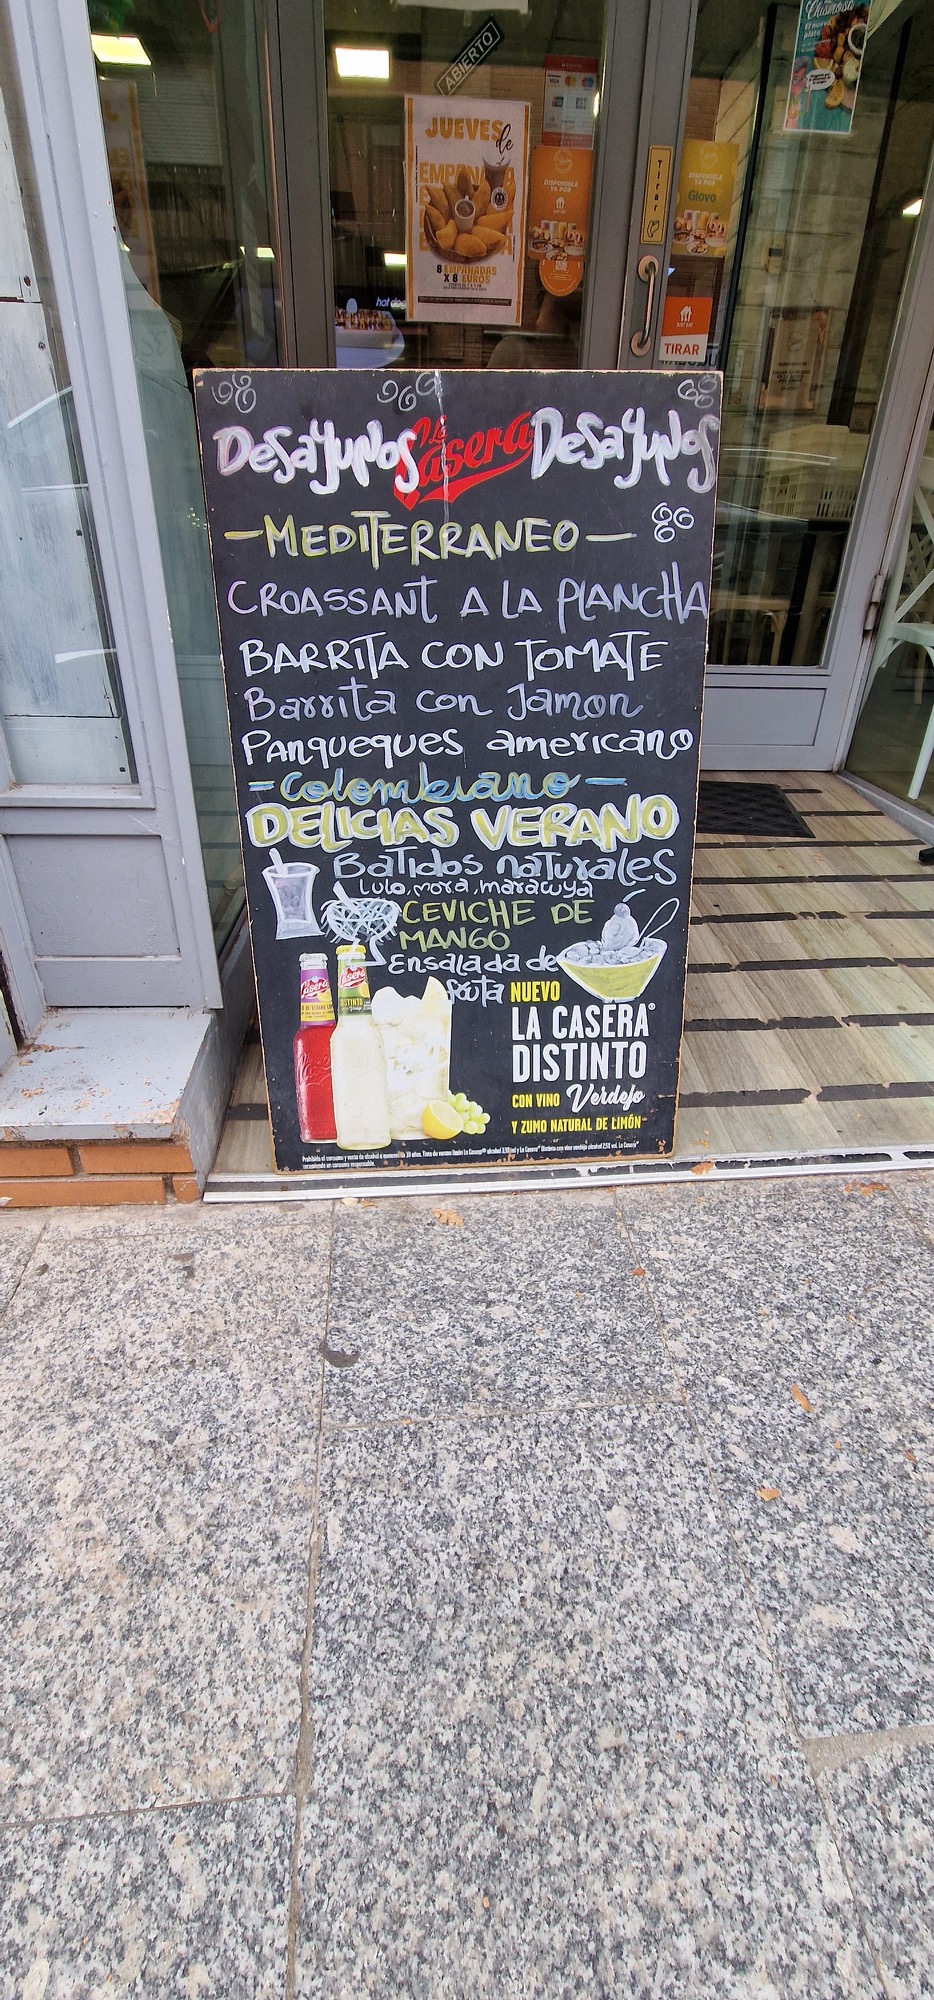 Chismosa
El nuevo
ABIERTO
VISA
JUEVES
de
EMPANADA
8 EMPANADAS
X 8 EUROS
DISPONIBLE
YA POR
JUST EAT
Tirar
DISPONIBLE
YA POR
Glovo
hot dog
JUST EAT
TIRAR
Desayunos La Casera Desayunos
- MEDITERRANEO -
CROASSANT A LA PLANCHA
BARRITA CON TOMATE
Barrita con Jamon
Panqueques americano
- Colombiano -
DELICIAS VERANO
Batidos naturales
Lulo, mora, maracuya
CEVICHE DE
MANGO
Ensalada de
fruta NUEVO
LA CASERA®
DISTINTO
CON VINO Verdejo
Y ZUMO NATURAL DE LIMÓN
Casera
Casera
DISTINTO